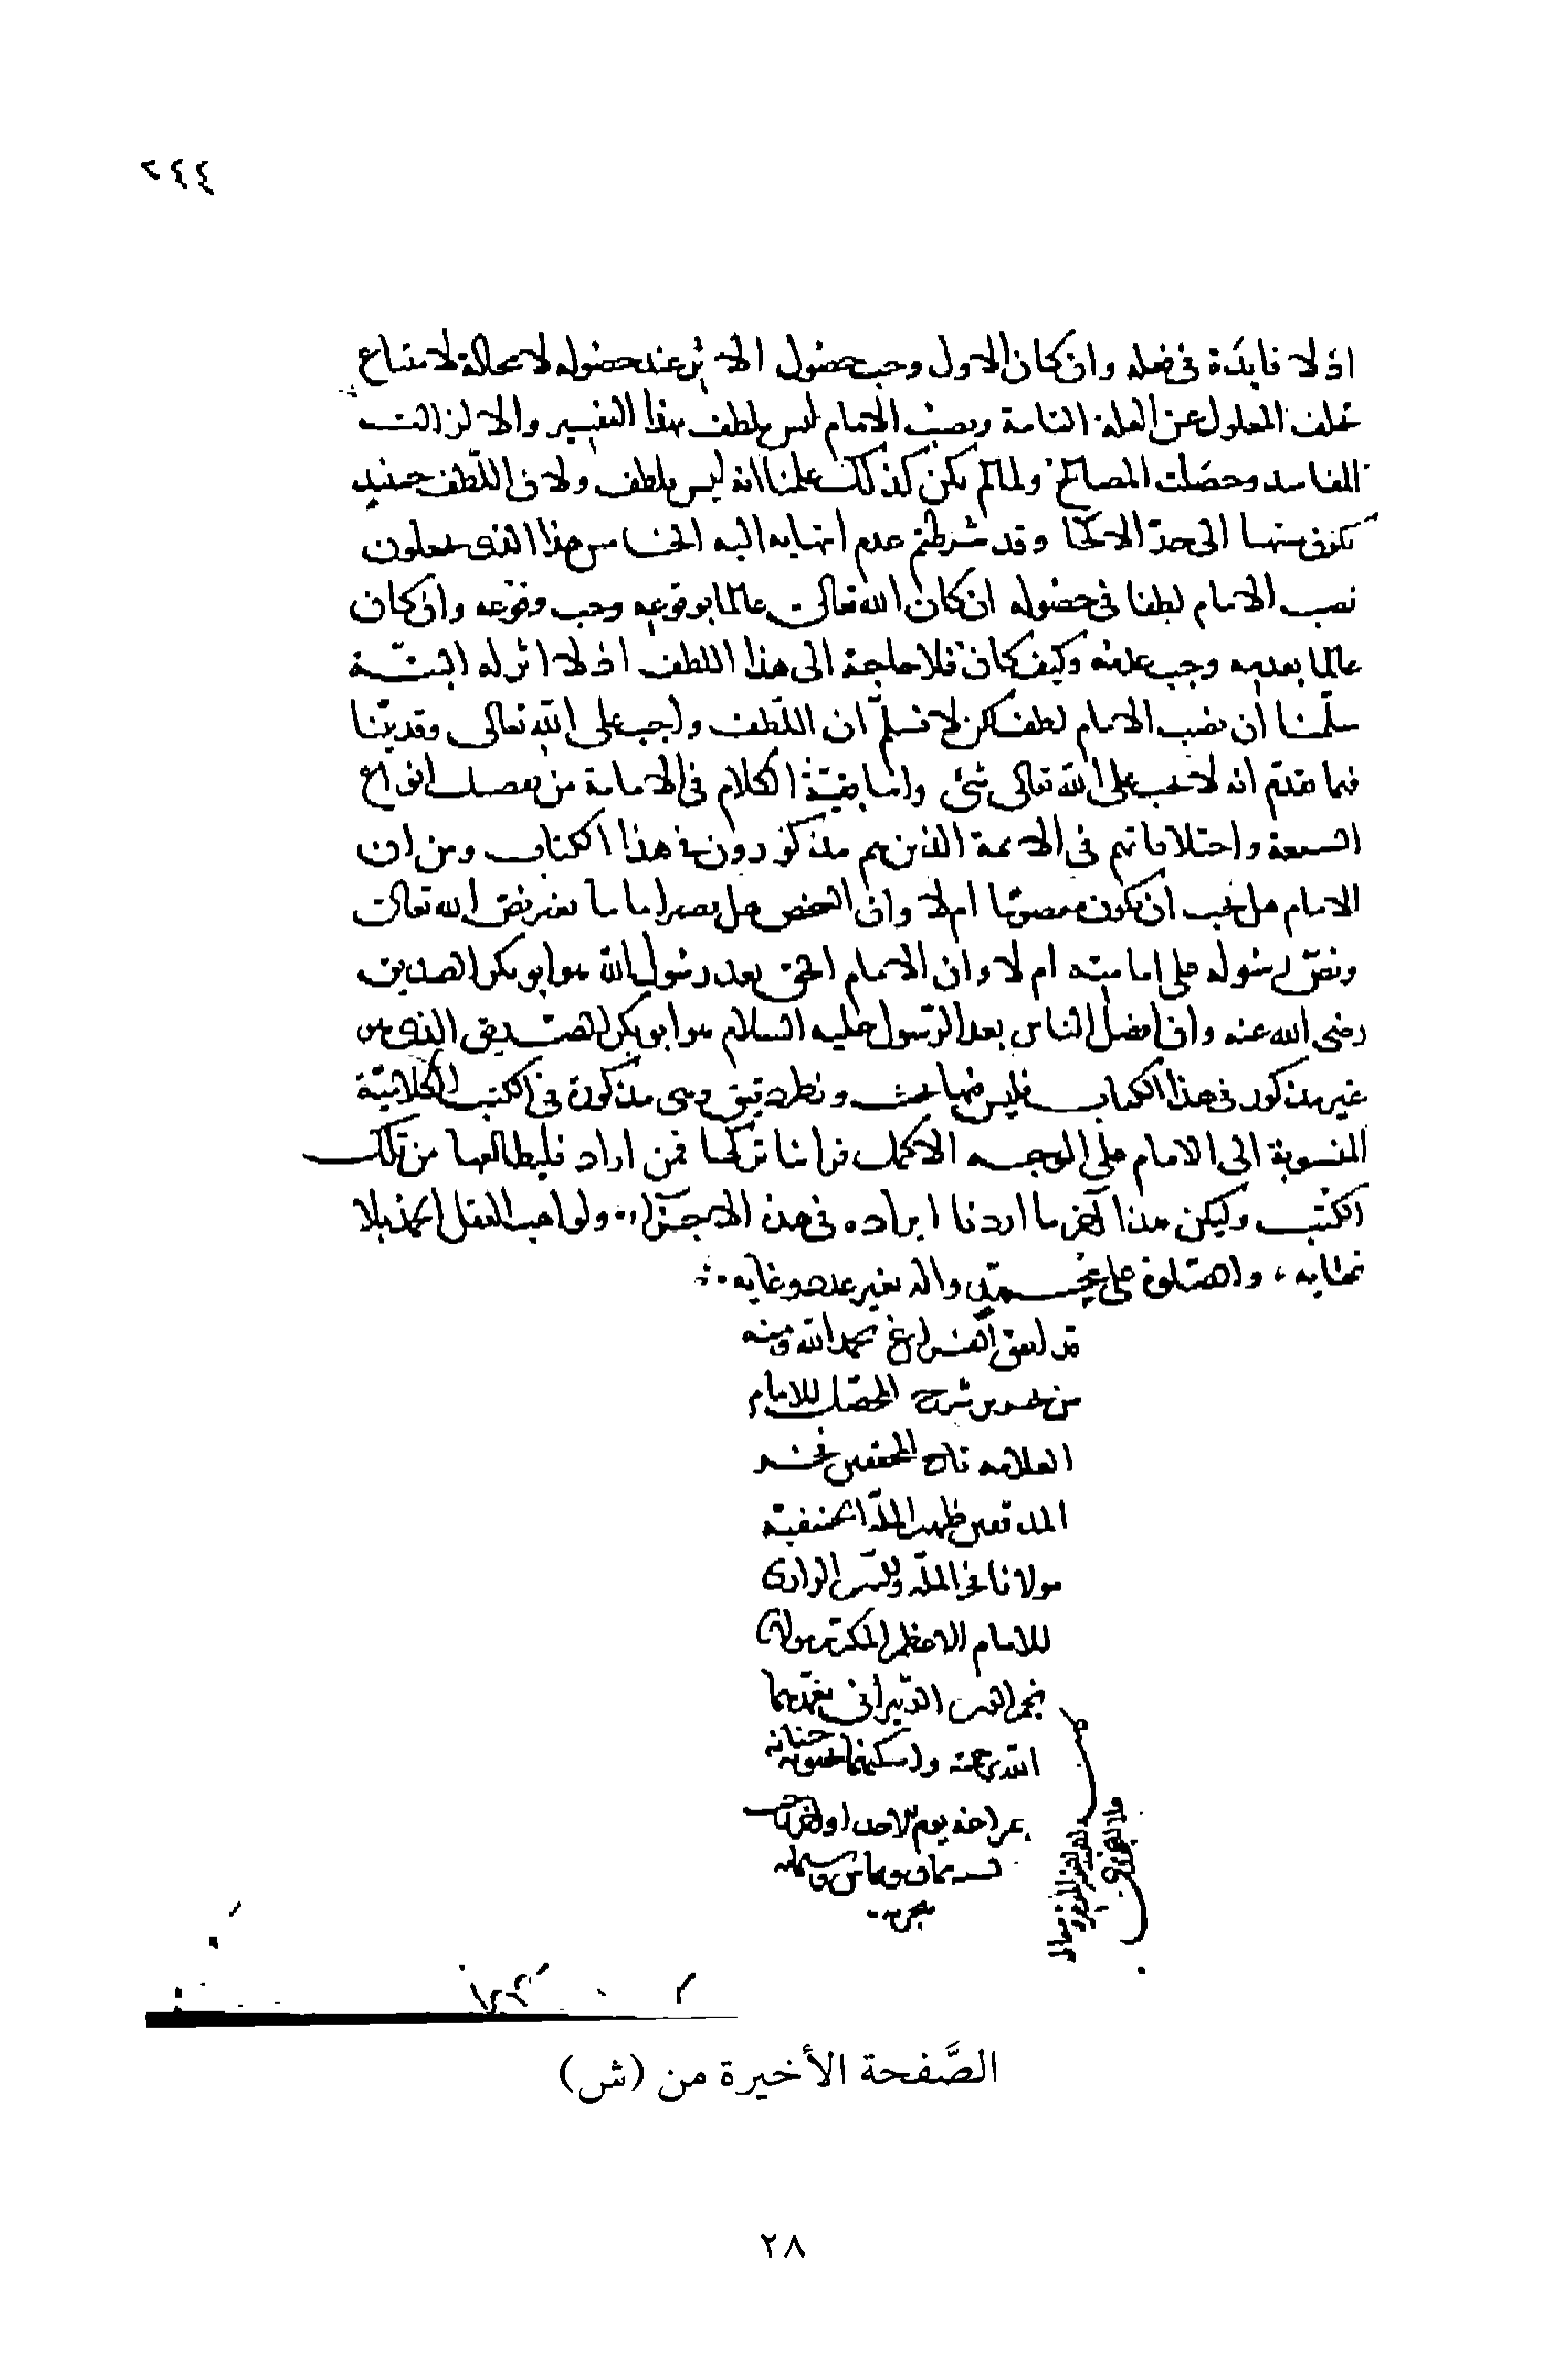 ٢٤٤
اذ لا فايدة في فعله وان كان الاول وجب حصول الاثر عند حصوله لا محالة لامتناع
تخلف المعلول عن العلة التامة ونصب الامام ليس بلطف بهذا التفسير والا لزالت
المفاسد وحصلت المصالح ولما لم يكن كذلك علمنا انه ليس بلطف ولان اللطف حينئذ
يكون منتهيا الى حد الالجا وقد شرطتم عدم انتهايه اليه الخامس هذا الذي تجعلون
نصب الامام لطفا في حصوله ان كان الله تعالى عالما بوقوعه وجب وقوعه وان كان
عالما بعدمه وجب عدمه وكيف كان فلا حاجة الى هذا اللطف اذ لا اثر له البتة
سلمنا ان نصب الامام لطف لكن لا نسلم ان اللطف واجب على الله تعالى وقد بينا
فيما تقدم انه لا يجب على الله تعالى شئ واما بقية الكلام في الامامة من تفصيل انواع
الشيعة واختلافاتهم في الائمة الذين هم مذكورون في هذا الكتاب ومن ان
الامام هل يجب ان يكون معصوما ام لا وان الشخص هل يصير اماما بغير نص الله تعالى
ونص رسوله على امامته ام لا وان الامام الحق بعد رسول الله هو ابو بكر الصديق
رضي الله عنه وان افضل الناس بعد الرسول عليه السلام هو ابو بكر الصديق الذي هو
غير مذكور في هذا الكتاب فليس فيها بحث ونظر دقيق وهي مذكورة في الكتب الكلامية
المنسوبة الى الامام على الوجه الاكمل فراينا تركها فمن اراد فليطالعها من تلك
الكتب وليكن هذا آخر ما اردنا ايراده في هذه الاجزاء ولواهب العقل الحمد بلا
نهاية ، والصلوة على محمد واله بغير عد وغاية
قد اتفق الفراغ بحمد الله ومنه
من تحرير شرح المحصل للامام
العلامه تاج المحققين فخر
المدققين ظهير الملة الحنفيه
مولانا فخر الملة والدين الرازي
للامام الاعظم المكرم مولانا
نجم الدين تغمدهما
الله برحمته واسكنهما جنانه
يوم الاحد
هجرية
الصَّفحة الأخيرة من (ش)
٢٨